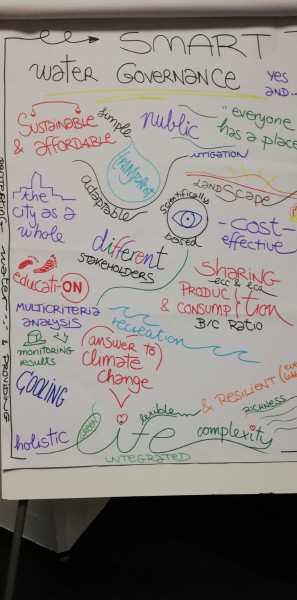 SMART
WATER GOVERNANCE
yes
and...
SUSTAINABLE
& affordable
simple
public
"everyone
has a place
TRANSPARENT
MITIGATION
LANDSCAPE
adaptable
scientifically
based
the
city as a
whole
-cost-
effective
different
STAKEHOLDERS
SHARING
educati-ON
PRODUC
& CONSUMP
tion
B/C RATIO
MULTICRITERIA
ANALYSIS
recreation
monitoring
results
(answer to)
climate
change
COOLING
& RESILIENT
RICHNESS
flexible
holistic
GREEN
life
complexity
INTEGRATED
& PROVIDING